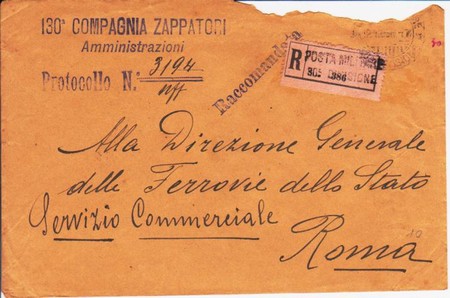 130ª COMPAGNIA ZAPPATORI
Amministrazioni
Protocollo N. 3194
Raccomandata
R POSTA MILITARE
Alla Direzione Generale
delle Ferrovie dello Stato
Servizio Commerciale
Roma